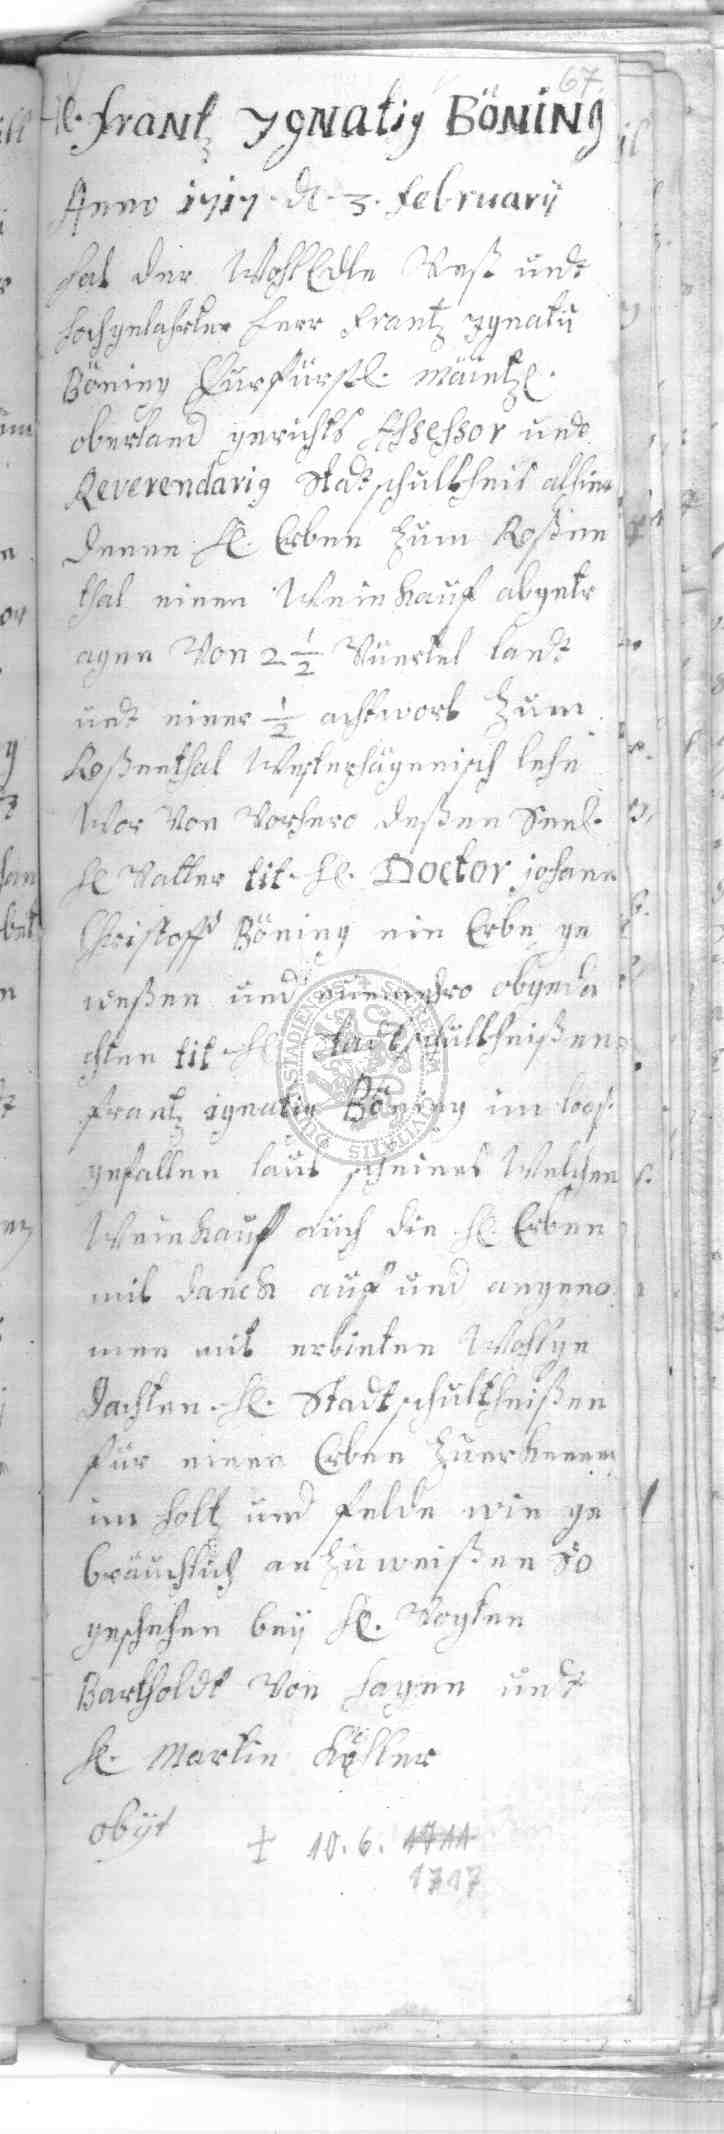 67.
H. Frantz Ignatiy Böning
Anno 1717 d. 3. February
hat der WohlEdle Vest undt
Hochgelahrter Herr Frantz Ignaty
Böning Churfürstl. Mäintzl.
oberland gerichts Assessor undt
Reverendariy Stadtschultheis alhier
denen H. Erben zum Roßen
thal einen Weinkauf abgetr
agen Von 2 1/2 Viertel landt
undt einer 1/2 achtwort zum
Roßenthal Westerhägenisch lehn
Wor Von Vorhero deßen Seel.
H Vatter tit. H. Doctor johann
Christoff Böning ein Erbe ge
weßen und nunmehro obgeda
chten tit H. Stadtschultheißen
Frantz ignatiy Böning im loos
gefallen laut scheines Welchen
Weinkauf auch die H. Erben
mit danck auf und angeno
men mit erbieten Wohlge
dachten H. Stadtschultheißen
für einen Erben zuerkennen
im holtz und felde wie ge
bräuchlich anzuweißen So
geschehen beÿ H. Vogten
Bartholdt Von Hagen undt
H. Martin Köhler
obÿt
† 10. 6. 1711
1717
SIGILLUM CIVITATIS DUDERSTADIENSIS